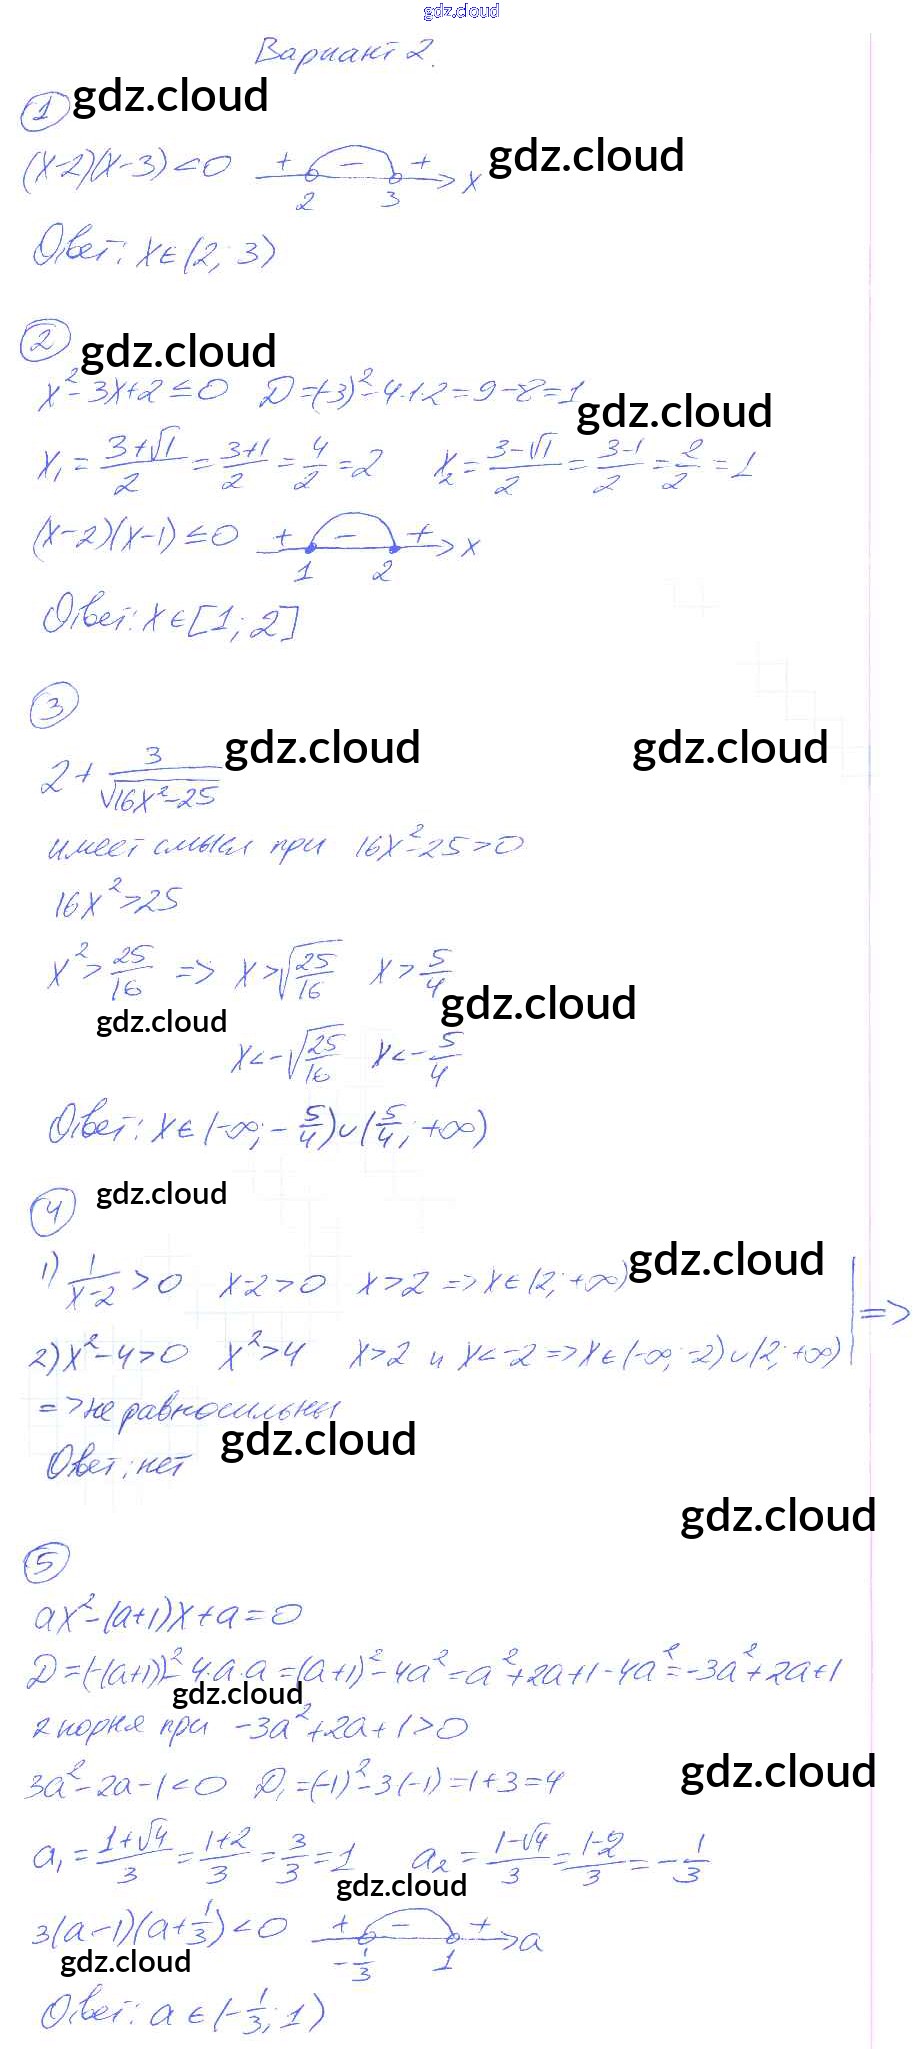 gdz.cloud
Вариант 2.
1 gdz.cloud
(x-2)(x-3)<0 + - + x gdz.cloud
2 3
Ответ: x∈(2; 3)
2 gdz.cloud
x²-3x+2≤0 D=(-3)²-4·1·2=9-8=1
gdz.cloud
x₁=(3+√1)/2=(3+1)/2=4/2=2 x₂=(3-√1)/2=(3-1)/2=2/2=1
(x-2)(x-1)≤0 + - + x
1 2
Ответ: x∈[1; 2]
3
2+3/√(16x²-25) gdz.cloud gdz.cloud
имеет смысл при 16x²-25>0
16x²>25
x²>25/16 => x>√(25/16) x>5/4
gdz.cloud gdz.cloud
x<-√(25/16) x<-5/4
Ответ: x∈(-∞; -5/4)∪(5/4; +∞)
4 gdz.cloud
1) 1/(x-2)>0 x-2>0 x>2 => x∈(2; +∞) gdz.cloud
2) x²-4>0 x²>4 x>2 и x<-2 => x∈(-∞; -2)∪(2; +∞) | =>
=> не равносильны
gdz.cloud
Ответ: нет
gdz.cloud
5
ax²-(a+1)x+a=0
D=(-(a+1))²-4·a·a=(a+1)²-4a²=a²+2a+1-4a²=-3a²+2a+1
gdz.cloud
2 корня при -3a²+2a+1>0
3a²-2a-1<0 D₁=(-1)²-3(-1)=1+3=4 gdz.cloud
a₁=(1+√4)/3=(1+2)/3=3/3=1 a₂=(1-√4)/3=(1-2)/3=-1/3
gdz.cloud
3(a-1)(a+1/3)<0 + - + a
gdz.cloud -1/3 1
Ответ: a∈(-1/3; 1)